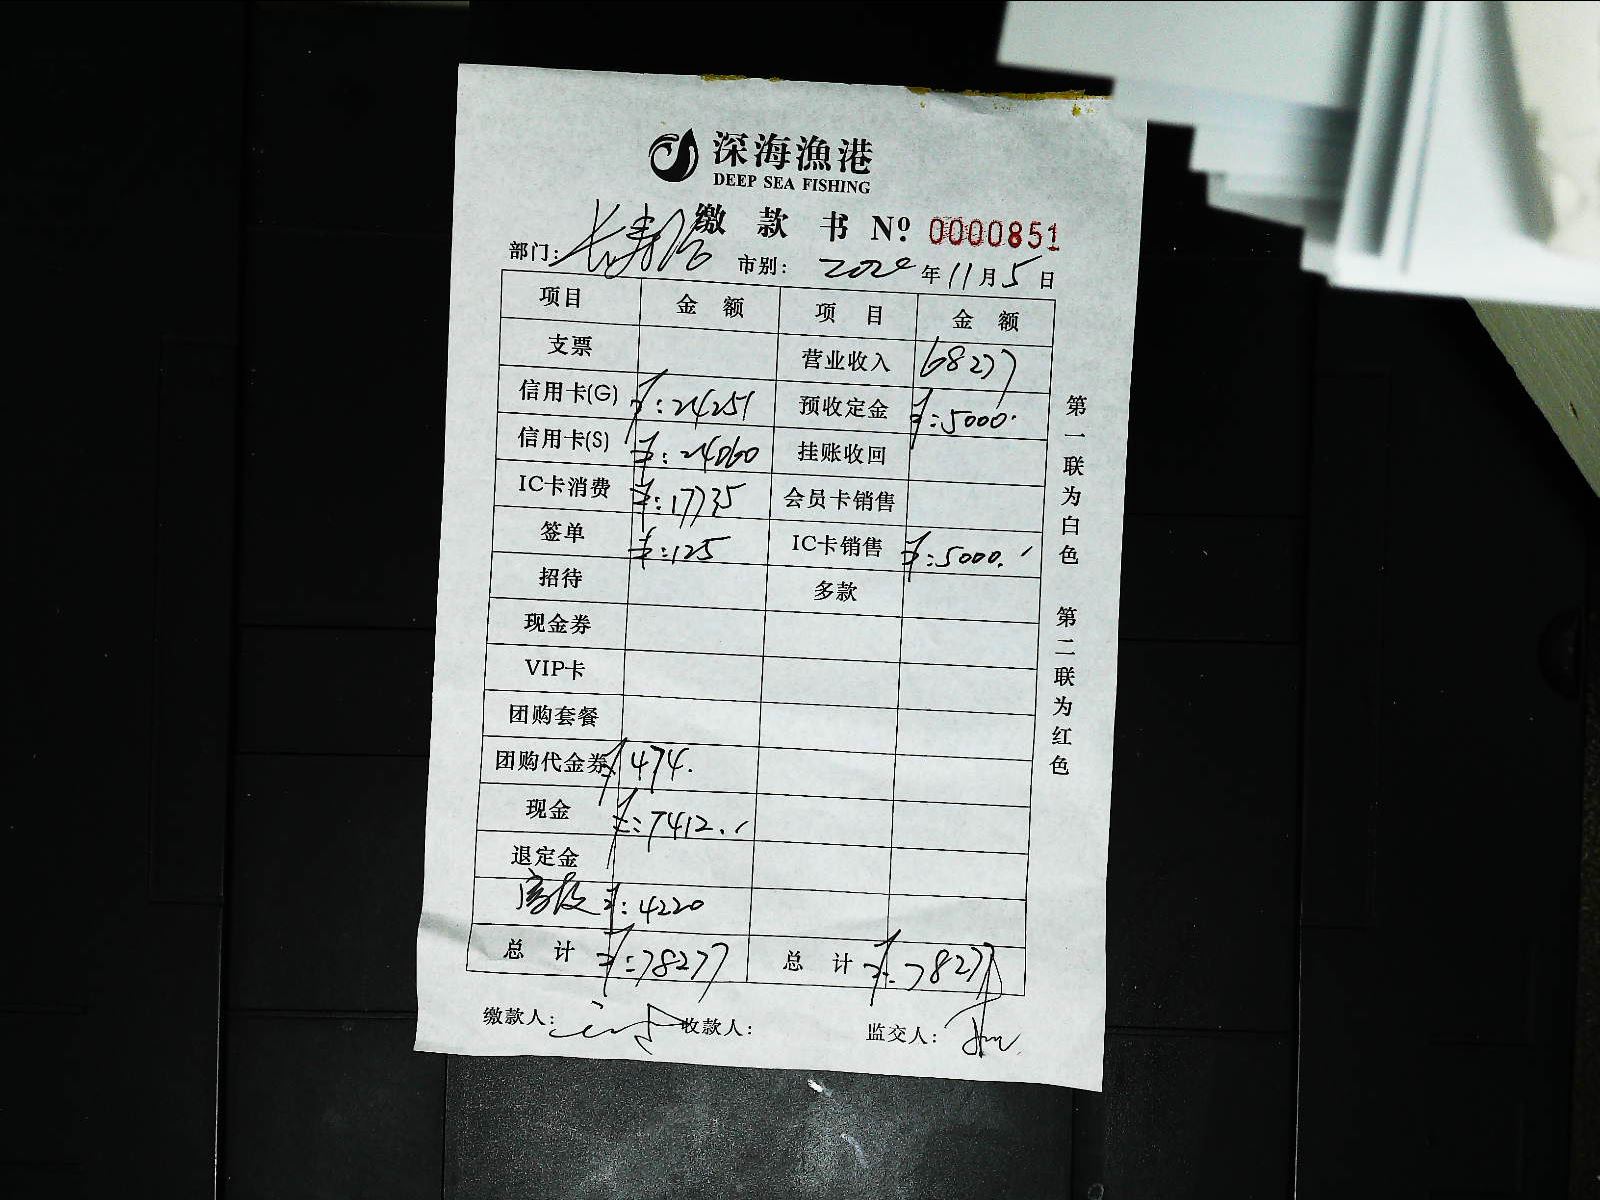 深海漁港
DEEP SEA FISHING
缴款书 Nº 0000851
部门: 长寿路 市别: 2020 年 11 月 5 日
项目 金额 项目 金额
支票 营业收入 68277
信用卡(G) ¥:24251 预收定金 ¥:5000.
信用卡(S) ¥:24060 挂账收回
IC卡消费 ¥:17735 会员卡销售
签单 ¥:125 IC卡销售 ¥:5000.
招待 多款
现金券
VIP卡
团购套餐
团购代金券 ¥474.
现金 ¥:7412.
退定金
¥:4220
总计 ¥:78277 总计 ¥:78277
缴款人: 收款人: 监交人:
第一联为白色 第二联为红色